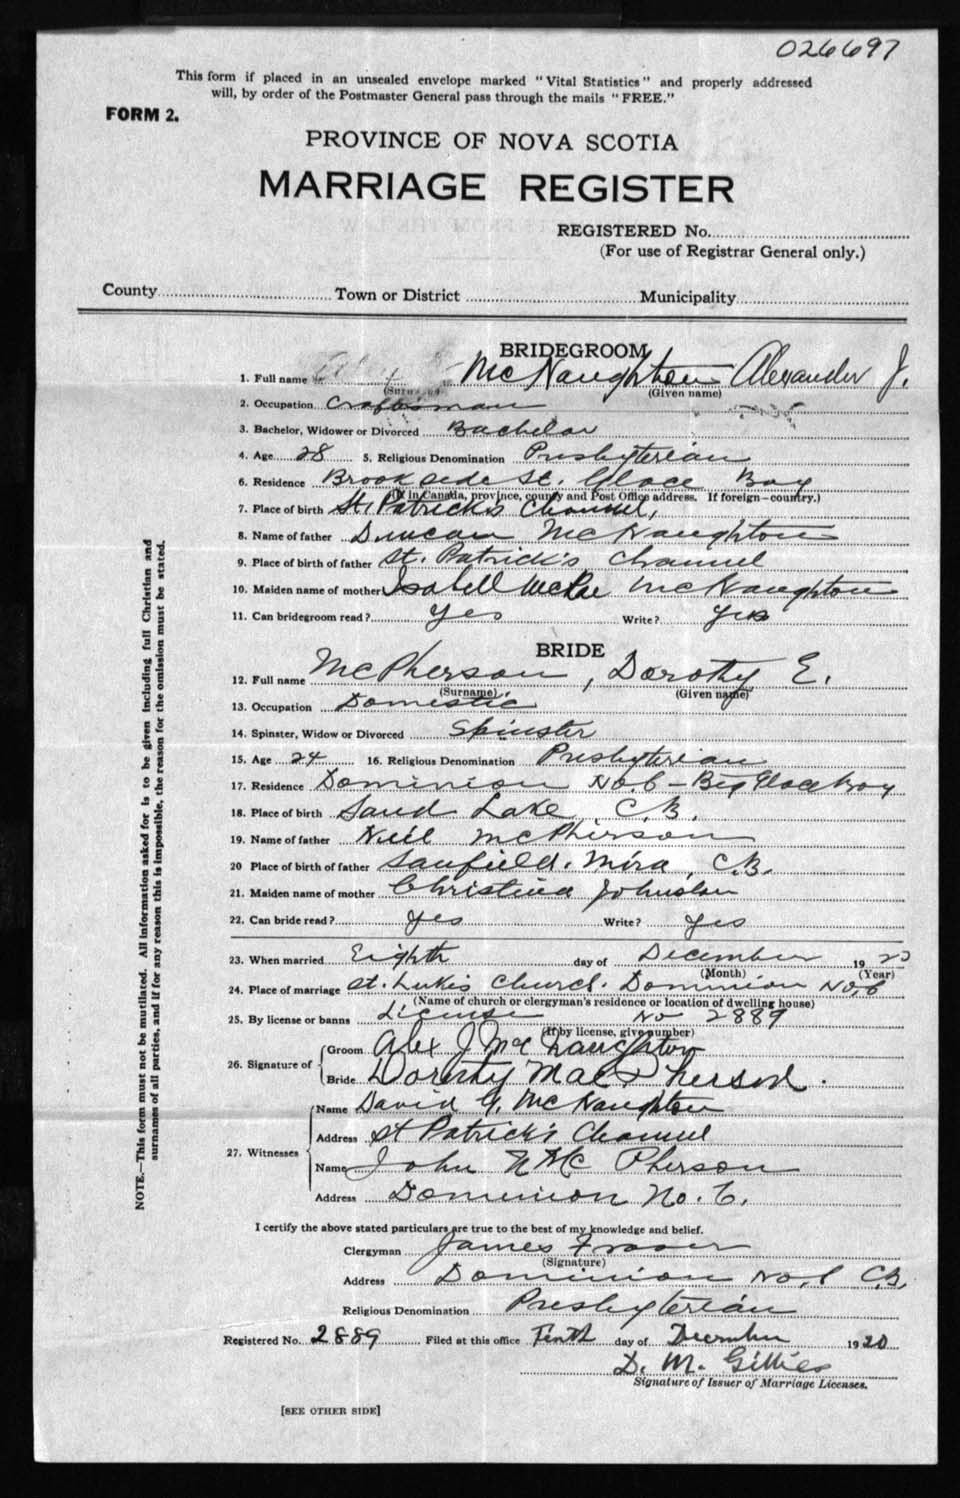 026697
This form if placed in an unsealed envelope marked "Vital Statistics" and properly addressed
will, by order of the Postmaster General pass through the mails "FREE."
FORM 2.
PROVINCE OF NOVA SCOTIA
MARRIAGE REGISTER
REGISTERED No.
(For use of Registrar General only.)
County Town or District Municipality
BRIDEGROOM
1. Full name McNaughton Alexander J.
(Surname) (Given name)
2. Occupation Craftsman
3. Bachelor, Widower or Divorced Bachelor
4. Age 28 5. Religious Denomination Presbyterian
6. Residence Brookside St. Glace Bay
(If in Canada, province, county and Post Office address. If foreign—country.)
7. Place of birth St. Patrick's Channel,
8. Name of father Duncan McNaughton
9. Place of birth of father St. Patrick's Channel
10. Maiden name of mother Isabell McRae McNaughton
11. Can bridegroom read? Yes Write? Yes
BRIDE
12. Full name McPherson, Dorothy E.
(Surname) (Given name)
13. Occupation Domestic
14. Spinster, Widow or Divorced Spinster
15. Age 24 16. Religious Denomination Presbyterian
17. Residence Dominion No. 6 - Big Glace Bay
18. Place of birth Sand Lake C.B.
19. Name of father Neil McPherson
20 Place of birth of father Sanfield. Mira, C.B.
21. Maiden name of mother Christina Johnston
22. Can bride read? Yes Write? Yes
23. When married Eighth day of December 1920
(Month) (Year)
24. Place of marriage St. Luke's Church. Dominion No. 6
(Name of church or clergyman's residence or location of dwelling house)
25. By license or banns License No 2889
(If by license, give number)
26. Signature of Groom Alex J McNaughton
Bride Dorothy MacPherson.
27. Witnesses Name David G. McNaughton
Address St Patrick's Channel
Name John N McPherson
Address Dominion No. 6.
I certify the above stated particulars are true to the best of my knowledge and belief.
Clergyman James Fraser
(Signature)
Address Dominion No. 6 C.B.
Religious Denomination Presbyterian
Registered No. 2889 Filed at this office Tenth day of December 1920
D. M. Gillies
Signature of Issuer of Marriage Licenses.
[SEE OTHER SIDE]
NOTE.—This form must not be mutilated. All information asked for is to be given including full Christian and
surnames of all parties, and if for any reason this is impossible, the reason for the omission must be stated.